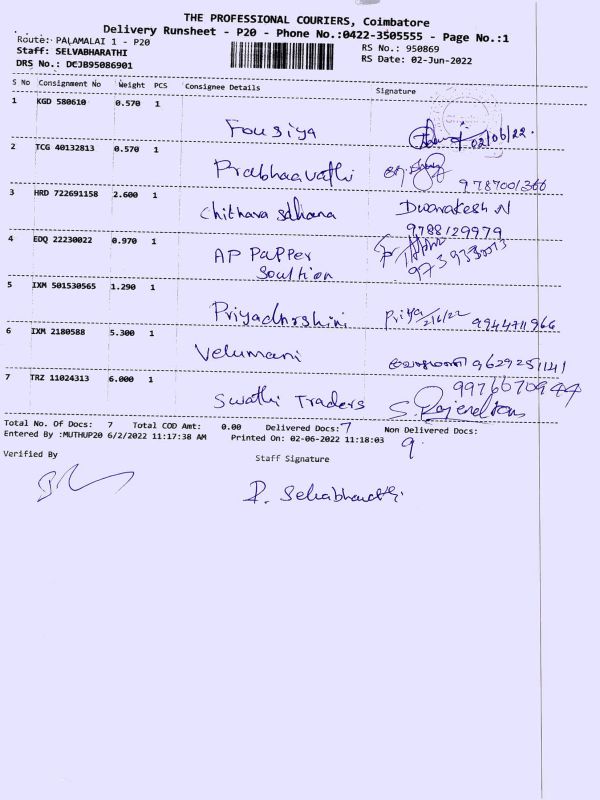 THE PROFESSIONAL COURIERS, Coimbatore
Delivery Runsheet - P20 - Phone No.:0422-3505555 - Page No.:1
Route: PALAMALAI 1 - P20 RS No.: 950869
Staff: SELVABHARATHI RS Date: 02-Jun-2022
DRS No.: DCJB95086901
S No Consignment No Weight PCS Consignee Details Signature
1 KGD 580610 0.570 1
Fousiya 02/06/22.
2 TCG 40132813 0.570 1
Prabhaavathi 9787001366
3 HRD 722691158 2.600 1
Chithara sdhana Dwarakesh N
9788129979
4 EDQ 22230022 0.970 1
AP PaPPer
Soultion 9739330073
5 IXM 501530565 1.290 1
Priyadharshini Priya 2/6/22 9944711966
6 IXM 2180588 5.300 1
Velumani 9629251141
7 TRZ 11024313 6.000 1 9976670944
Swathi Traders S. Rajendran
Total No. Of Docs: 7 Total COD Amt: 0.00 Delivered Docs: 7 Non Delivered Docs:
Entered By :MUTHUP20 6/2/2022 11:17:38 AM Printed On: 02-06-2022 11:18:03 9.
Verified By Staff Signature
P. Selvabharathi